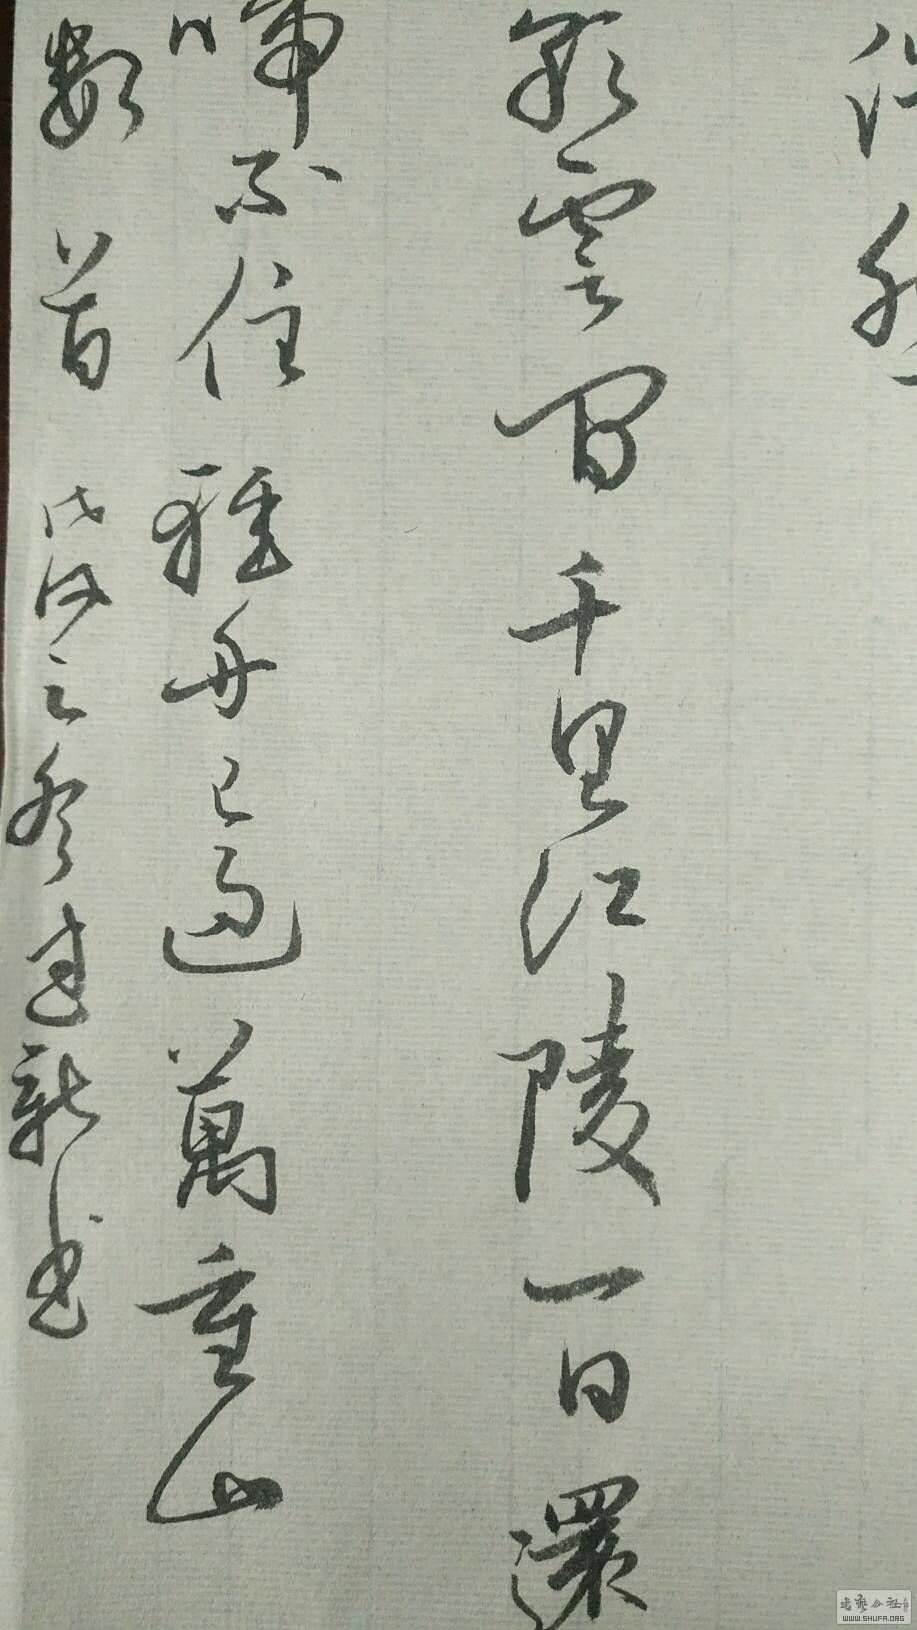 彩雲間千里江陵一日還
啼不住輕舟已過萬重山
數首 戊戌之冬建新书
书艺公社
WWW.SHUFA.ORG